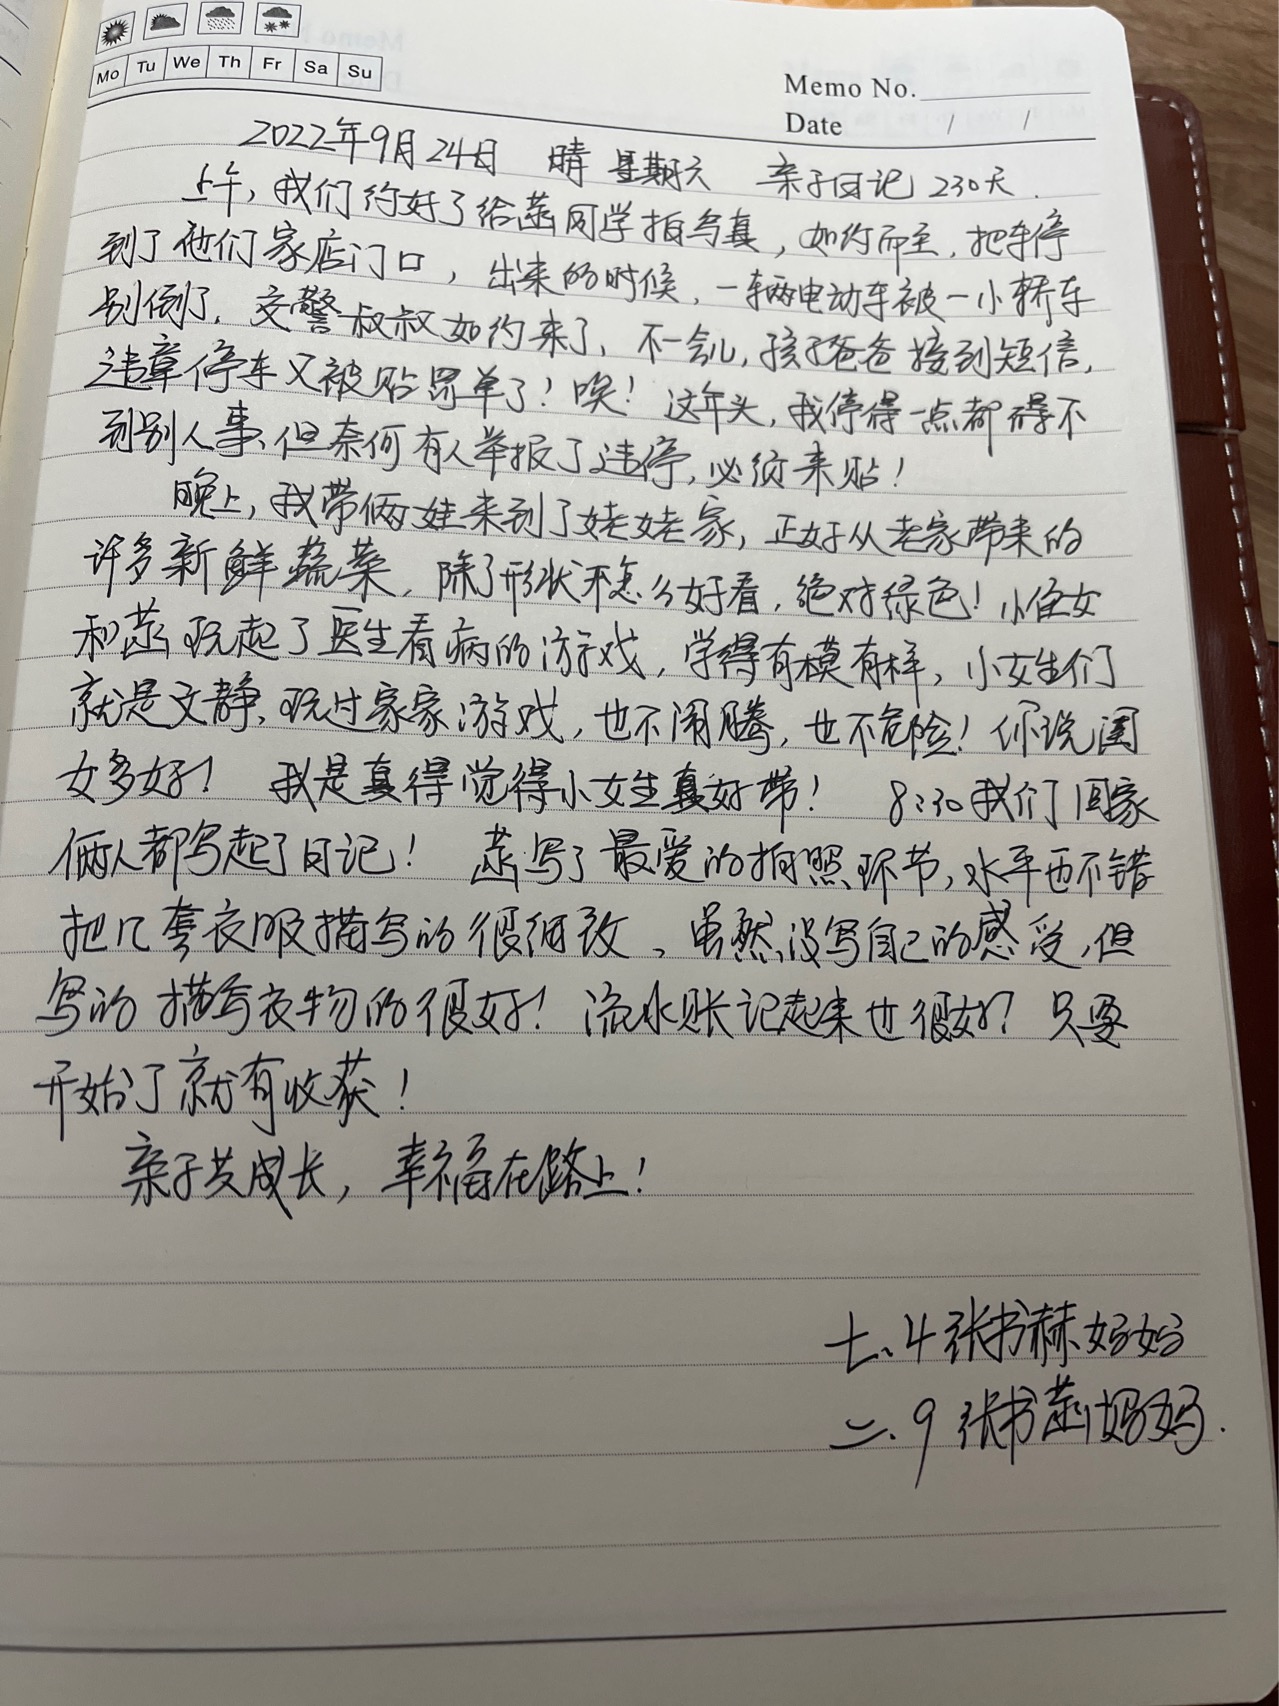 Mo Tu We Th Fr Sa Su
Memo No.
Date / /
2022年9月24日 晴 星期六 亲子日记 230天.
上午，我们约好了给菡同学拍写真，如约而至，把车停
到了他们家店门口，出来的时候，一辆电动车被一小轿车
别倒了，交警叔叔如约来了，不一会儿，孩子爸爸接到短信，
违章停车又被贴罚单了！唉！这年头，我停得一点都得不
到别人事、但奈何有人举报了违停，必须来贴！
晚上，我带俩娃来到了姥姥家，正好从老家带来的
许多新鲜蔬菜，除了形状不怎么好看，绝对绿色！小侄女
和菡玩起了医生看病的游戏，学得有模有样，小女生们
就是文静，玩过家家游戏，也不闹腾，也不危险！你说闺
女多好！我是真得觉得小女生真好带！ 8:30我们回家
俩人都写起了日记！菡写了最爱的拍照环节，水平也不错
把几套衣服描写的很细致、虽然没写自己的感受，但
写的描写衣物的很好！流水账记起来也很好？只要
开始了就有收获！
亲子共成长，幸福在路上！
七、4 张书赫妈妈
二、9 张书菡妈妈.